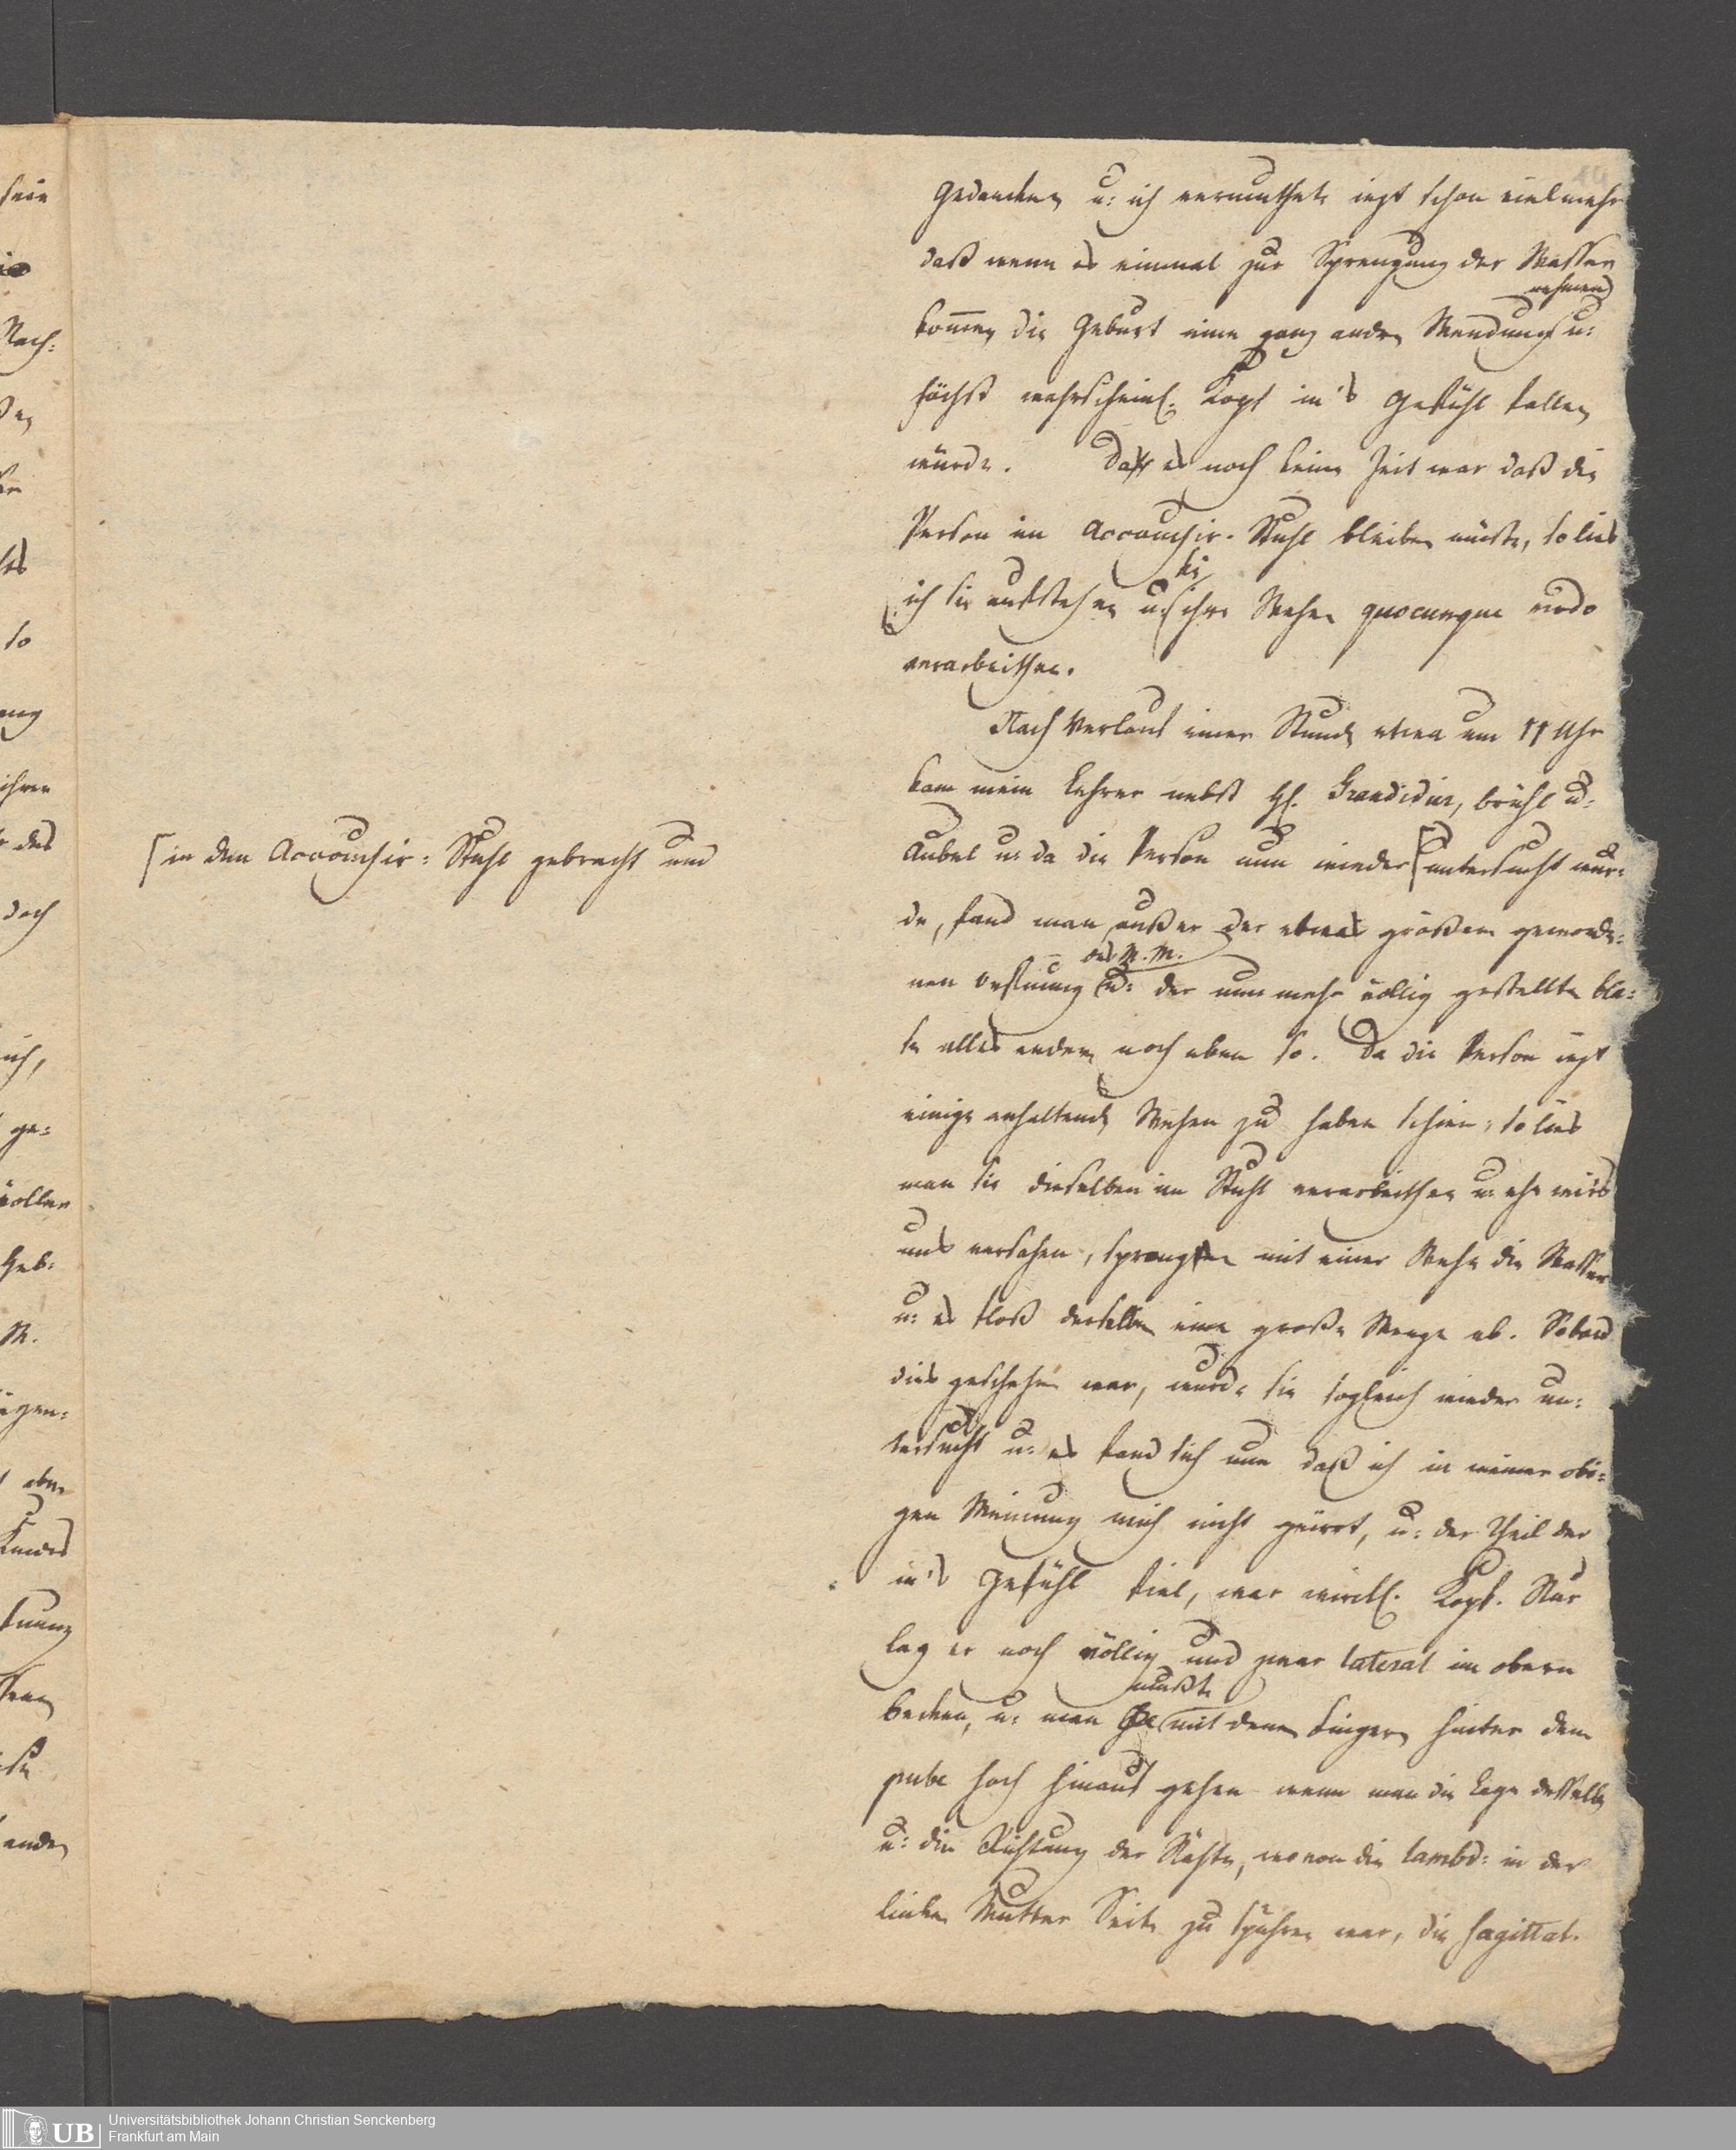 Gedancken u: ich vermuthete iezt schon vielmehr
daß wenn es einmal zur Sprengung der Wasser
nehmen
kom̄e, die Geburt eine ganz andre Wendung u:
höchst wahrscheinl: Kopf in's Gefühl fallen
würde. Da es noch keine Zeit war daß die
Person im Accouchir-Stuhl bleiben müste, so lies
sie
ich sie aufstehen u: ihre Wehen quocunque modo
verarbeithen.
Nach Verlauf einer Stunde etwa um 11 Uhr
kam mein Lehrer nebst H. Grandidier, brühl u:
Aubel u: da die Person nun wieder untersucht wur-
[in den Accouchir-Stuhl gebracht und
de, fand man, außer der etwas größern geworde-
des M. M.
nen Oeffnung u: der nunmehr völlig gestellten bla-
se alles andere noch eben so. Da die Person iezt
einige anhaltende Wehen zu haben schien, so lies
man sie dieselben im Stuhl verarbeithen u: ehe wir's
uns versahen, sprangen mit einer Wehe die Wasser
u: es floß derselben eine große Menge ab. Sobald
dies geschehen war, wurde sie sogleich wieder un-
tersucht u: es fand sich nun daß ich in meiner obi-
gen Meinung mich nicht geirrt, u: der Theil der
in's Gefühl fiel, war wirckl. Kopf. Nur
lag er noch völlig und zwar lateral im obern
mußte
Becken, u: man mit denen Fingern hinter dem
pube hoch hinauf gehen wenn man die Lage desselben
u: die Richtung der Näthe, wovon die lambd: in der
lincken Mutter Seite zu spühren war, die sagittal-
Universitätsbibliothek Johann Christian Senckenberg
UB Frankfurt am Main